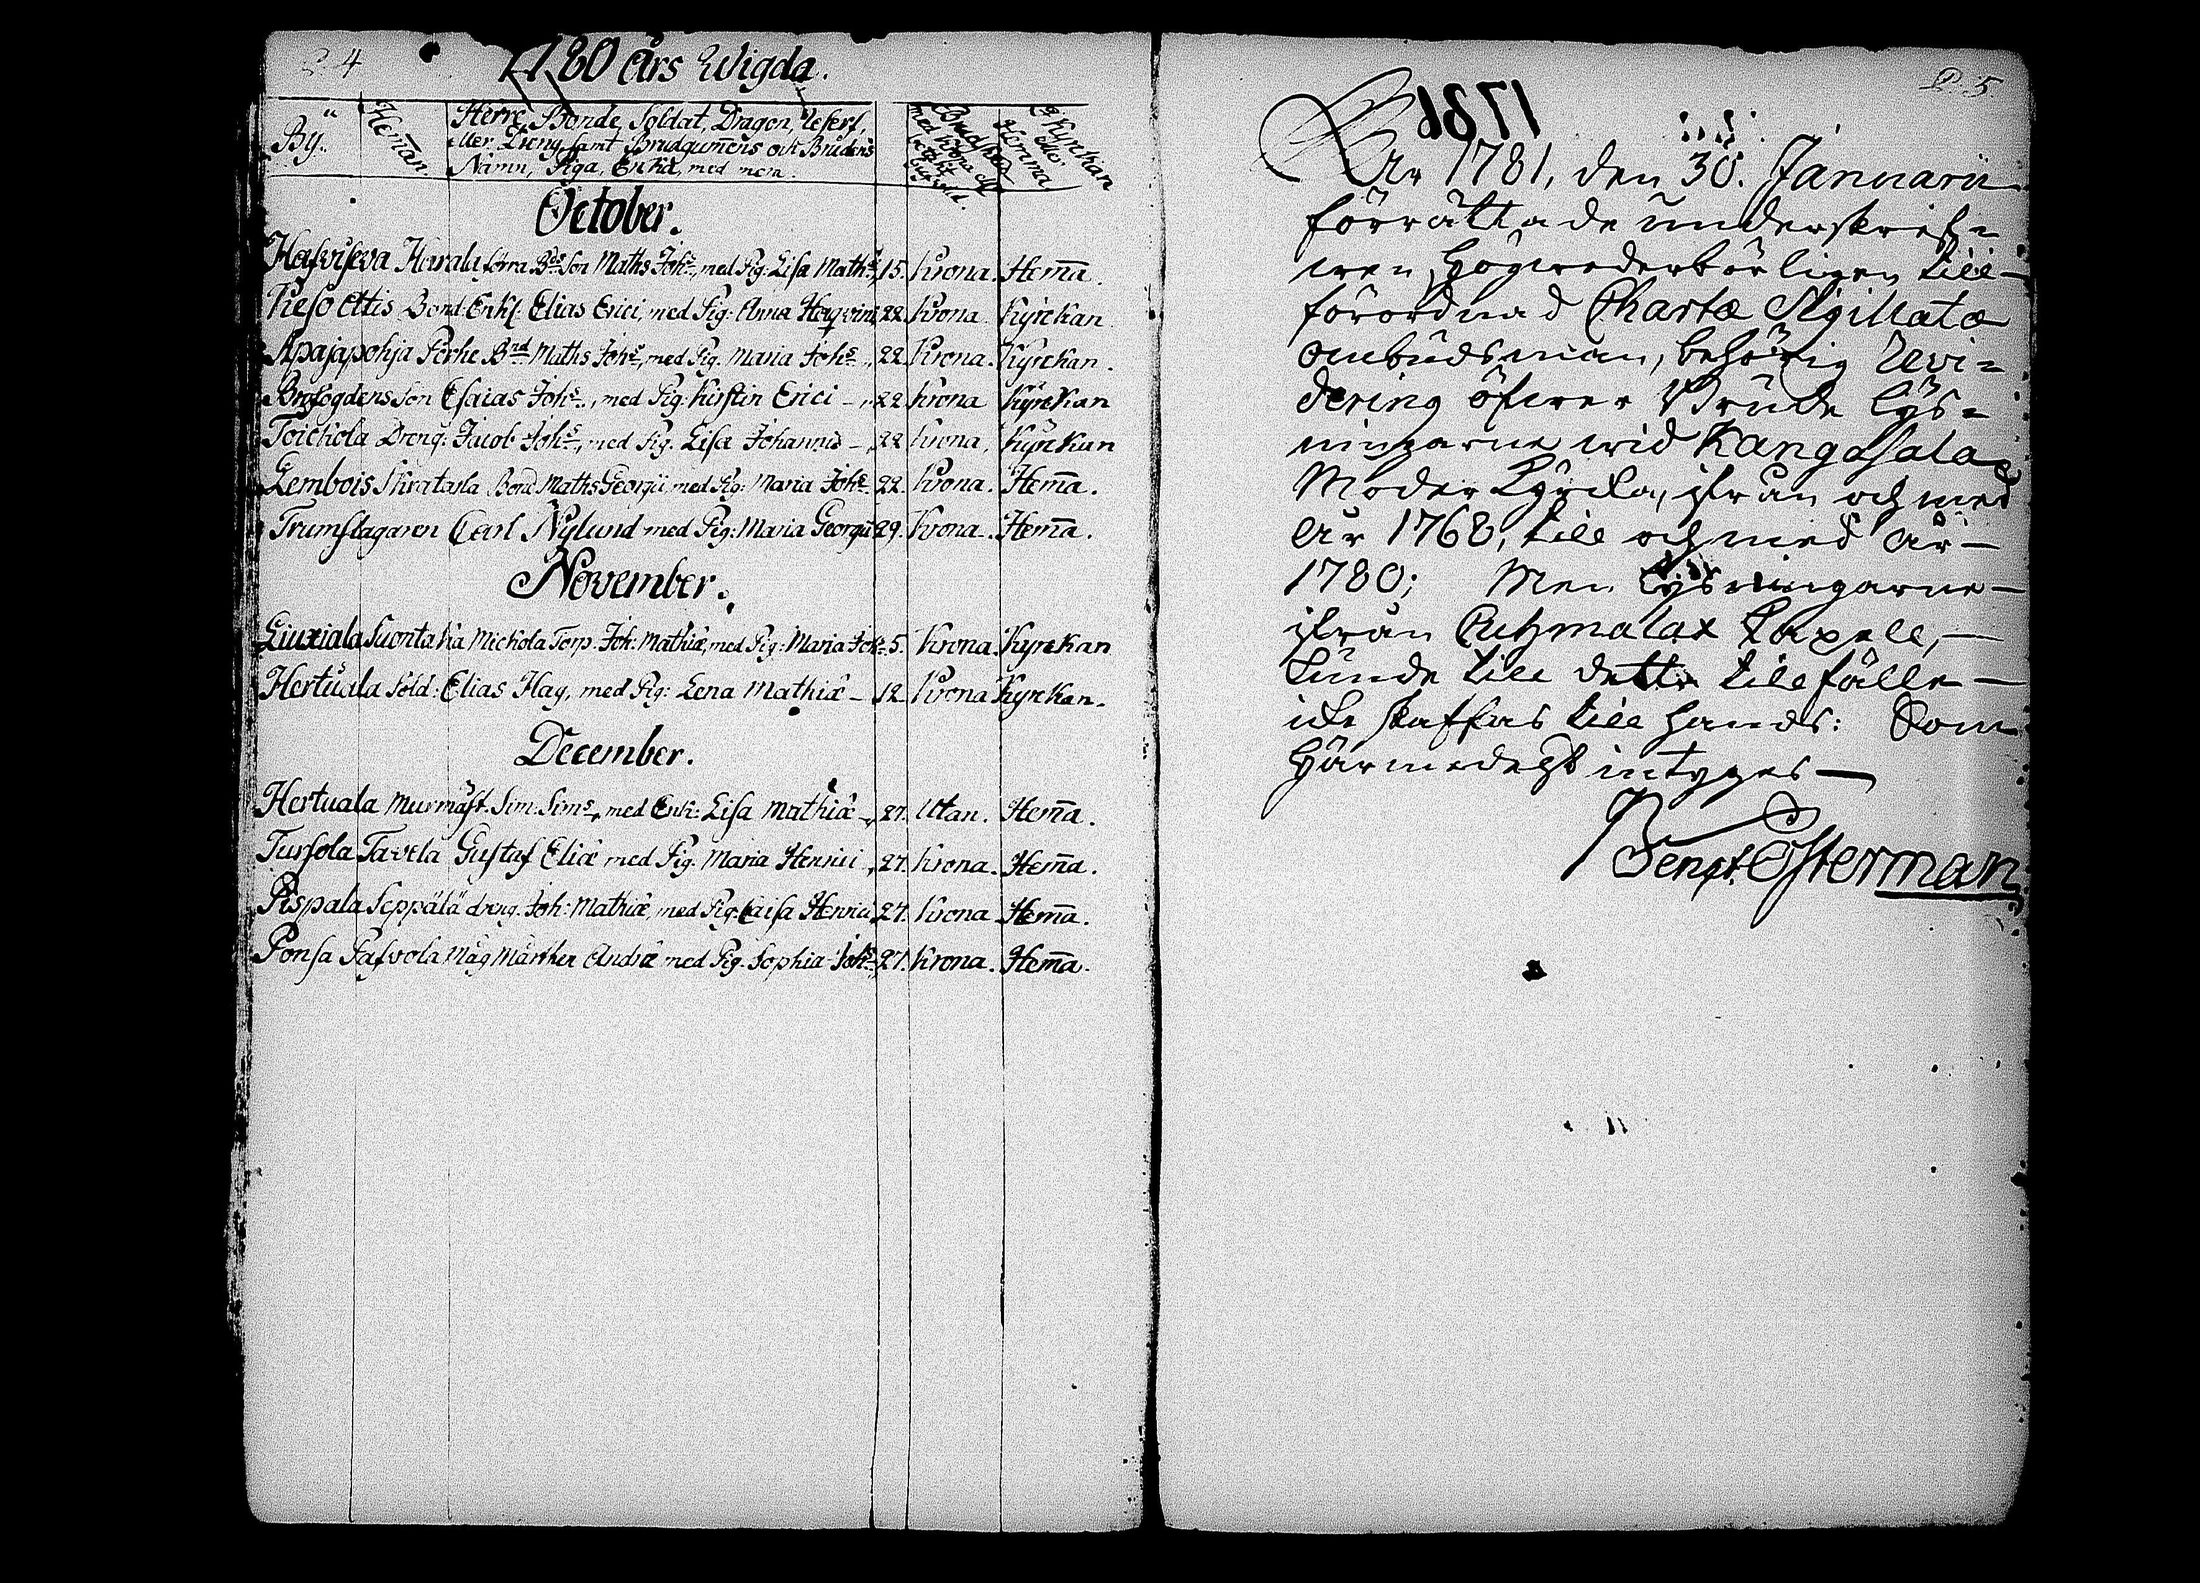 4
1780 Års Wigda.
By.
Heman.
Herre, Bonde, Soldat, Dragon, Reserf,
ller Dreng samt Brudgumens och Brudens
Namn, Piga, Enkia, med mera.
Brudstol med krona ell
Kyrckan eller Hemma
October.
Hafviseva Harala förra Bds Son Maths Johs, med Pig: Lisa Maths 15. Krona. Hema.
Rieso Ottis Bond: Enkl: Elias Erici, med Pig: Anna Henr 22. Krona. Kyrckan.
Apajapohja Perhe Bnd Maths Johs, med Pig. Maria Johs 22. Krona. Kyrckan.
Son Esaias Johs, med Pig: Kirstin Erici 22 Krona Kyrckan
Toickola Dreng: Jacob Johs, med Pig: Lisa Johannis 22 Krona, Kyrckan
Lembois Skratasla Bond Maths Georgii med Pig: Maria Johs 22. Krona. Hema.
Trumslagaren Carl Nylund med Pig: Maria Georgii 29. Krona. Hema.
November.
Liuxiala Suontaka Mickola Torp. Joh: Mathiæ, med Pig: Maria Joh 5. Krona. Kyrckan
Hertuala Sold: Elias Hag, med Pig: Lena Mathiæ 12. Krona Kyrckan.
December.
Hertuala Murmäst. Sim: Sims, med Enk: Lisa Mathiæ 27. Utan. Hema.
Tursola Tavela Gustaf Eliæ med Pig. Maria Henrici 27. Krona. Hema.
Pispala Seppälä dreng. Joh: Mathiæ, med Pig: Caisa Henrici 27. Krona. Hema.
Ponsa Pafvola Måg Mårthen Andræ med Pig. Sophia Johs 27. Krona. Hema.
5
1781
År 1781, den 30. Januarii
förrättade underskref=
wen, Högwederbörligen till-
förordnad Chartæ Sigillatæ
ombudsman, behörig Revi=
dering öfwer Brude Lys=
ningarne wid Kangasala
Moder Kyrcka, ifrån och med
År 1768, till och med År
1780; Men Lysningarne
ifrån Kuhmalax Capell,
kunde till detta tillfälle
icke skaffas till hands: Som
härmedelst intyges
Bengt Österman